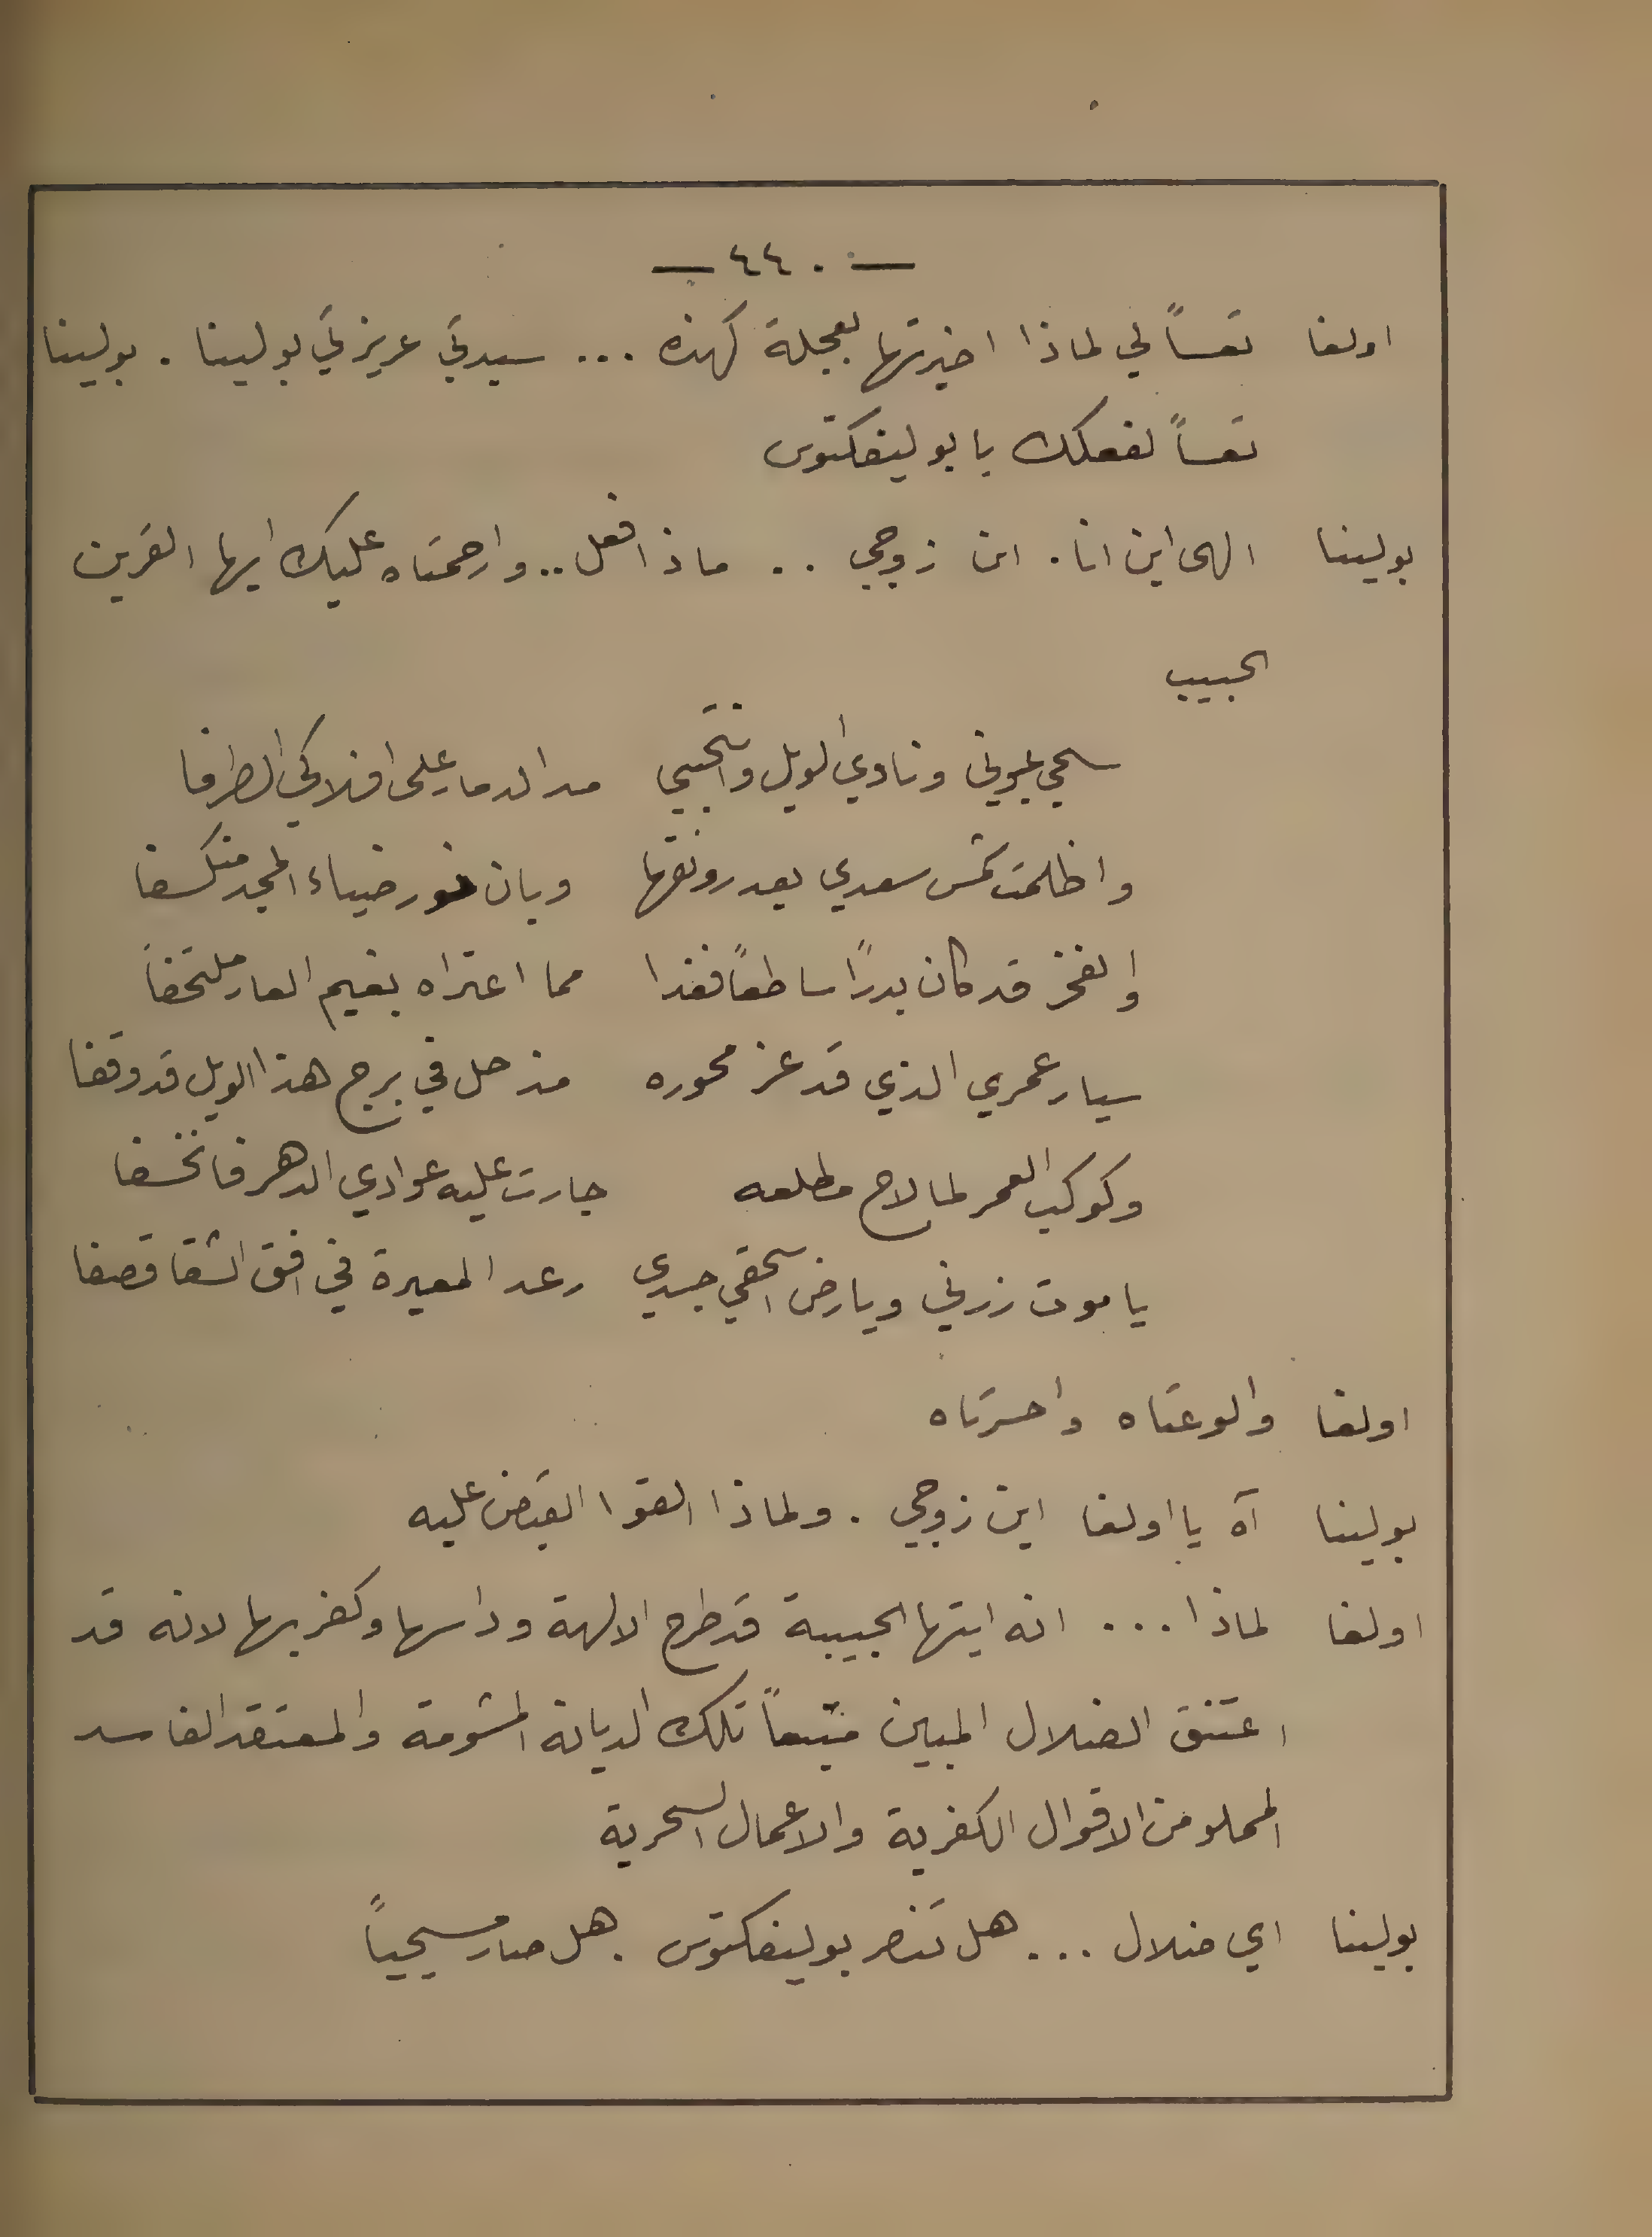 — ٤٤٠ —
اولغا تعساً لي لماذا اخبرتها بعجلة كهذه ... سيدتي عزيزتي بولينا . بولينا
تعساً لفعلك يا بوليفكتوس
بولينا الهي اين انا . اين زوجي .. ماذا افعل .. وارحمتاه عليك ايها القرين
الحبيب
سحي عيوني ونادي الويل وانتحبي مد الدمار على افلاكي الطرفا
واظلمت شمس سعدي بعد رونقها وبان نور ضياء المجد منكسفا
والفخر قد كان بدرًا ساطعًا فغدا مما اعتراه بغيم العار ملتحفاً
سيار عمري الذي قد عز محوره مذ حل في برج هذا الويل قد وقفا
وكوكب العمر لما لاح مطلعه جارت عليه عوادي الدهر فانخسفا
يا موت زرني ويا رض اسحقي جسدي رعد المعيرة في افق الشقا قصفا
اولغا والوعتاه واحسرتاه
بولينا آه يا اولغا اين زوجي . ولماذا القوا القبض عليه
اولغا لماذا ... انه ايتها الحبيبة قد طرح الالهة وداسها وكفر بها لانه قد
اعتنق الضلال المبين متبعاً تلك الديانة المشومة والمعتقد الفاسد
المملو من الاقوال الكفرية والاعمال السحرية
بولينا اي ضلال ... هل تنصر بوليفكتوس . هل صار مسيحياً